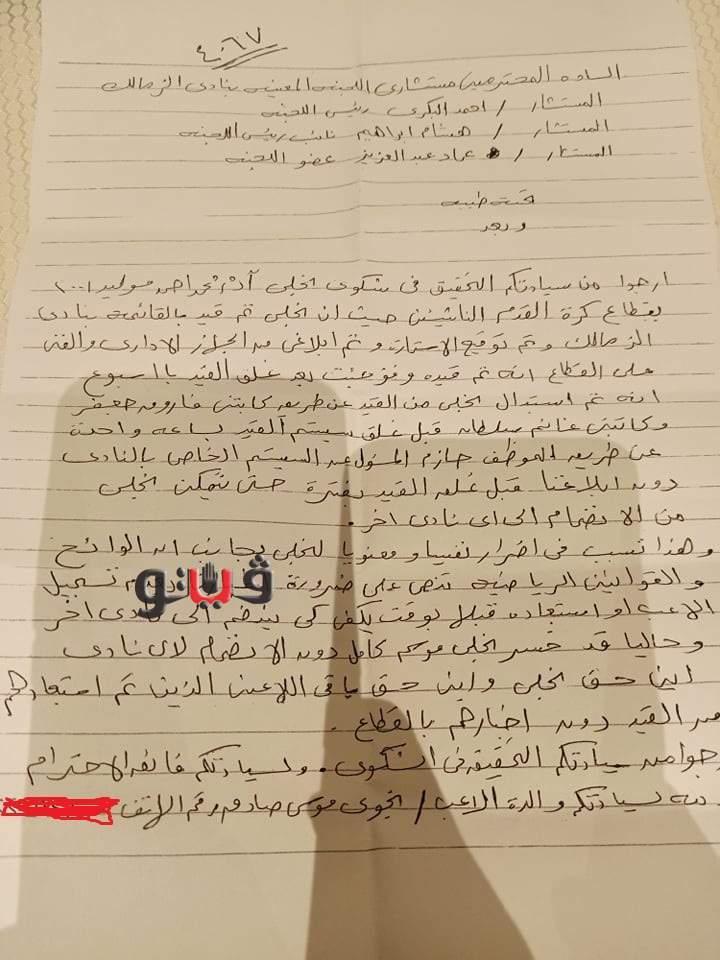 ٤٠٦٧
الساده المحترمين مستشارى اللجنه المعينه بنادى الزمالك
المستشار / احمد البكرى رئيس اللجنه
المستشار / هشام ابراهيم نائب رئيس اللجنه
المستشار / عماد عبد العزيز عضو اللجنه
تحية طيبه
وبعد
ارجوا من سيادتكم التحقيق فى شكوى نجلى مواليد ٢٠٠١
بقطاع كرة القدم الناشئين حيث ان نجلى تم قيد بالقائمه بنادى
الزمالك وتم توقيع الاستمارة وتم ابلاغى من الجهاز الادارى والفنى
على القطاع انه تم قيده وفوجئت بعد غلق القيد باسبوع
انه تم استبدال نجلى من القيد عن طريق كابتن فاروق جعفر
وكابتن غانم سلطان قبل غلق سيستم القيد بساعه واحدة
عن طريق الموظف حازم المسئول عن السيستم الخاص بالنادى
دون ابلاغنا قبل غلق القيد بفترة حتى يتمكن نجلى
من الانضمام الى اى نادى اخر .
وهذا تسبب فى اضرار نفسيا ومعنويا لنجلى بجانب ان الوائح
و القوانين الرياضيه تنص على ضرورة تسجيل
ڤيتو
الاعب او استبعاده قبلها بوقت يكفى كى ينضم الى نادى اخر
وحاليا قد خسر نجلى موسم كامل دون الانضمام لاى نادى
اين حق نجلى واين حق باقى اللاعبين الذين تم استبعادهم
من القيد دون اخبارهم بالقطاع .
رجوا من سيادتكم التحقيق فى الشكوى . ولسيادتكم فائق الاحترام
لسيادتكم والدة الاعب / نجوى موسى صادق رقم الهاتف